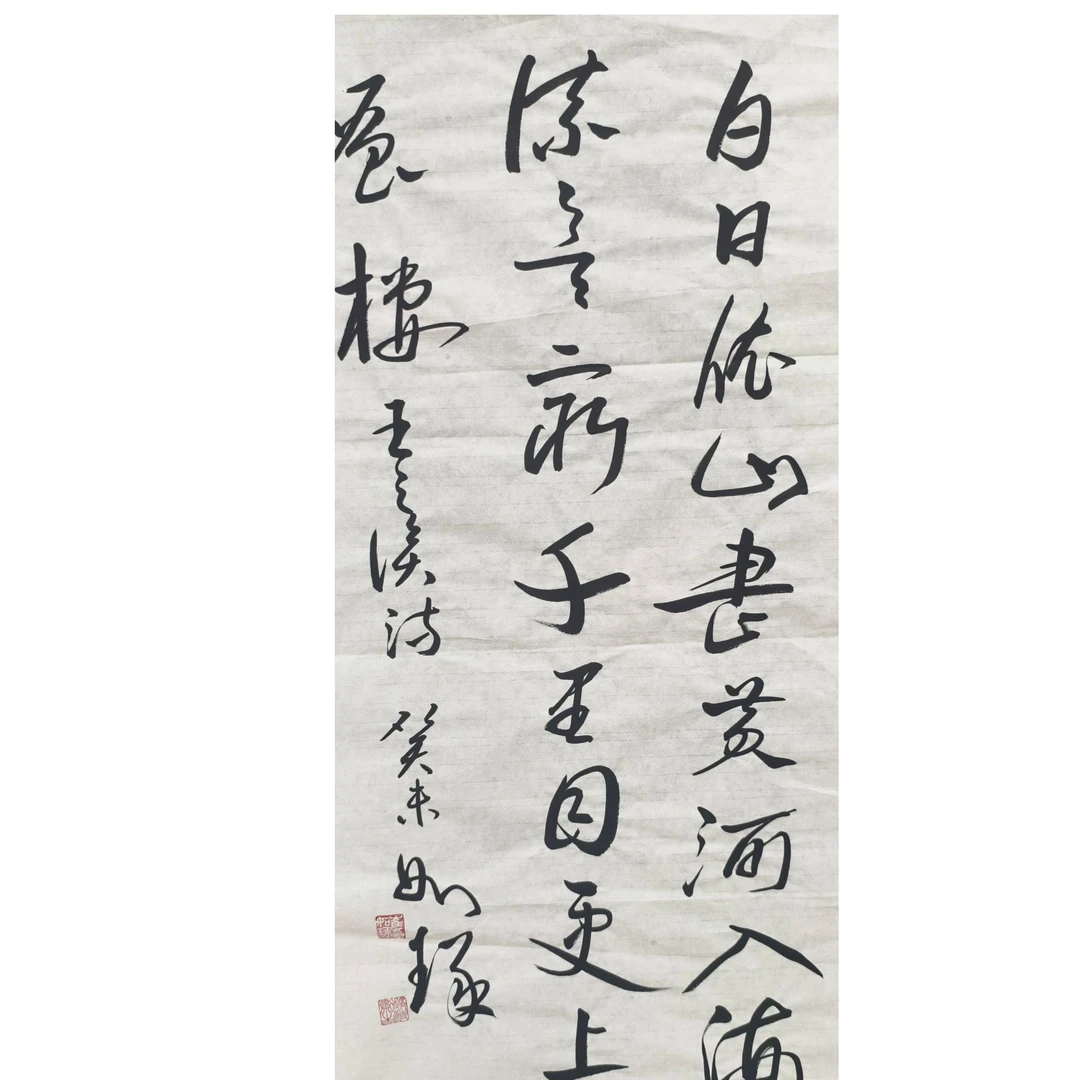 白日依山盡黄河入海
流窮千里目更上
層樓 王之渙詩 癸未 如